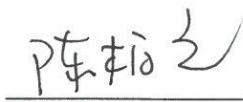 陈柏之